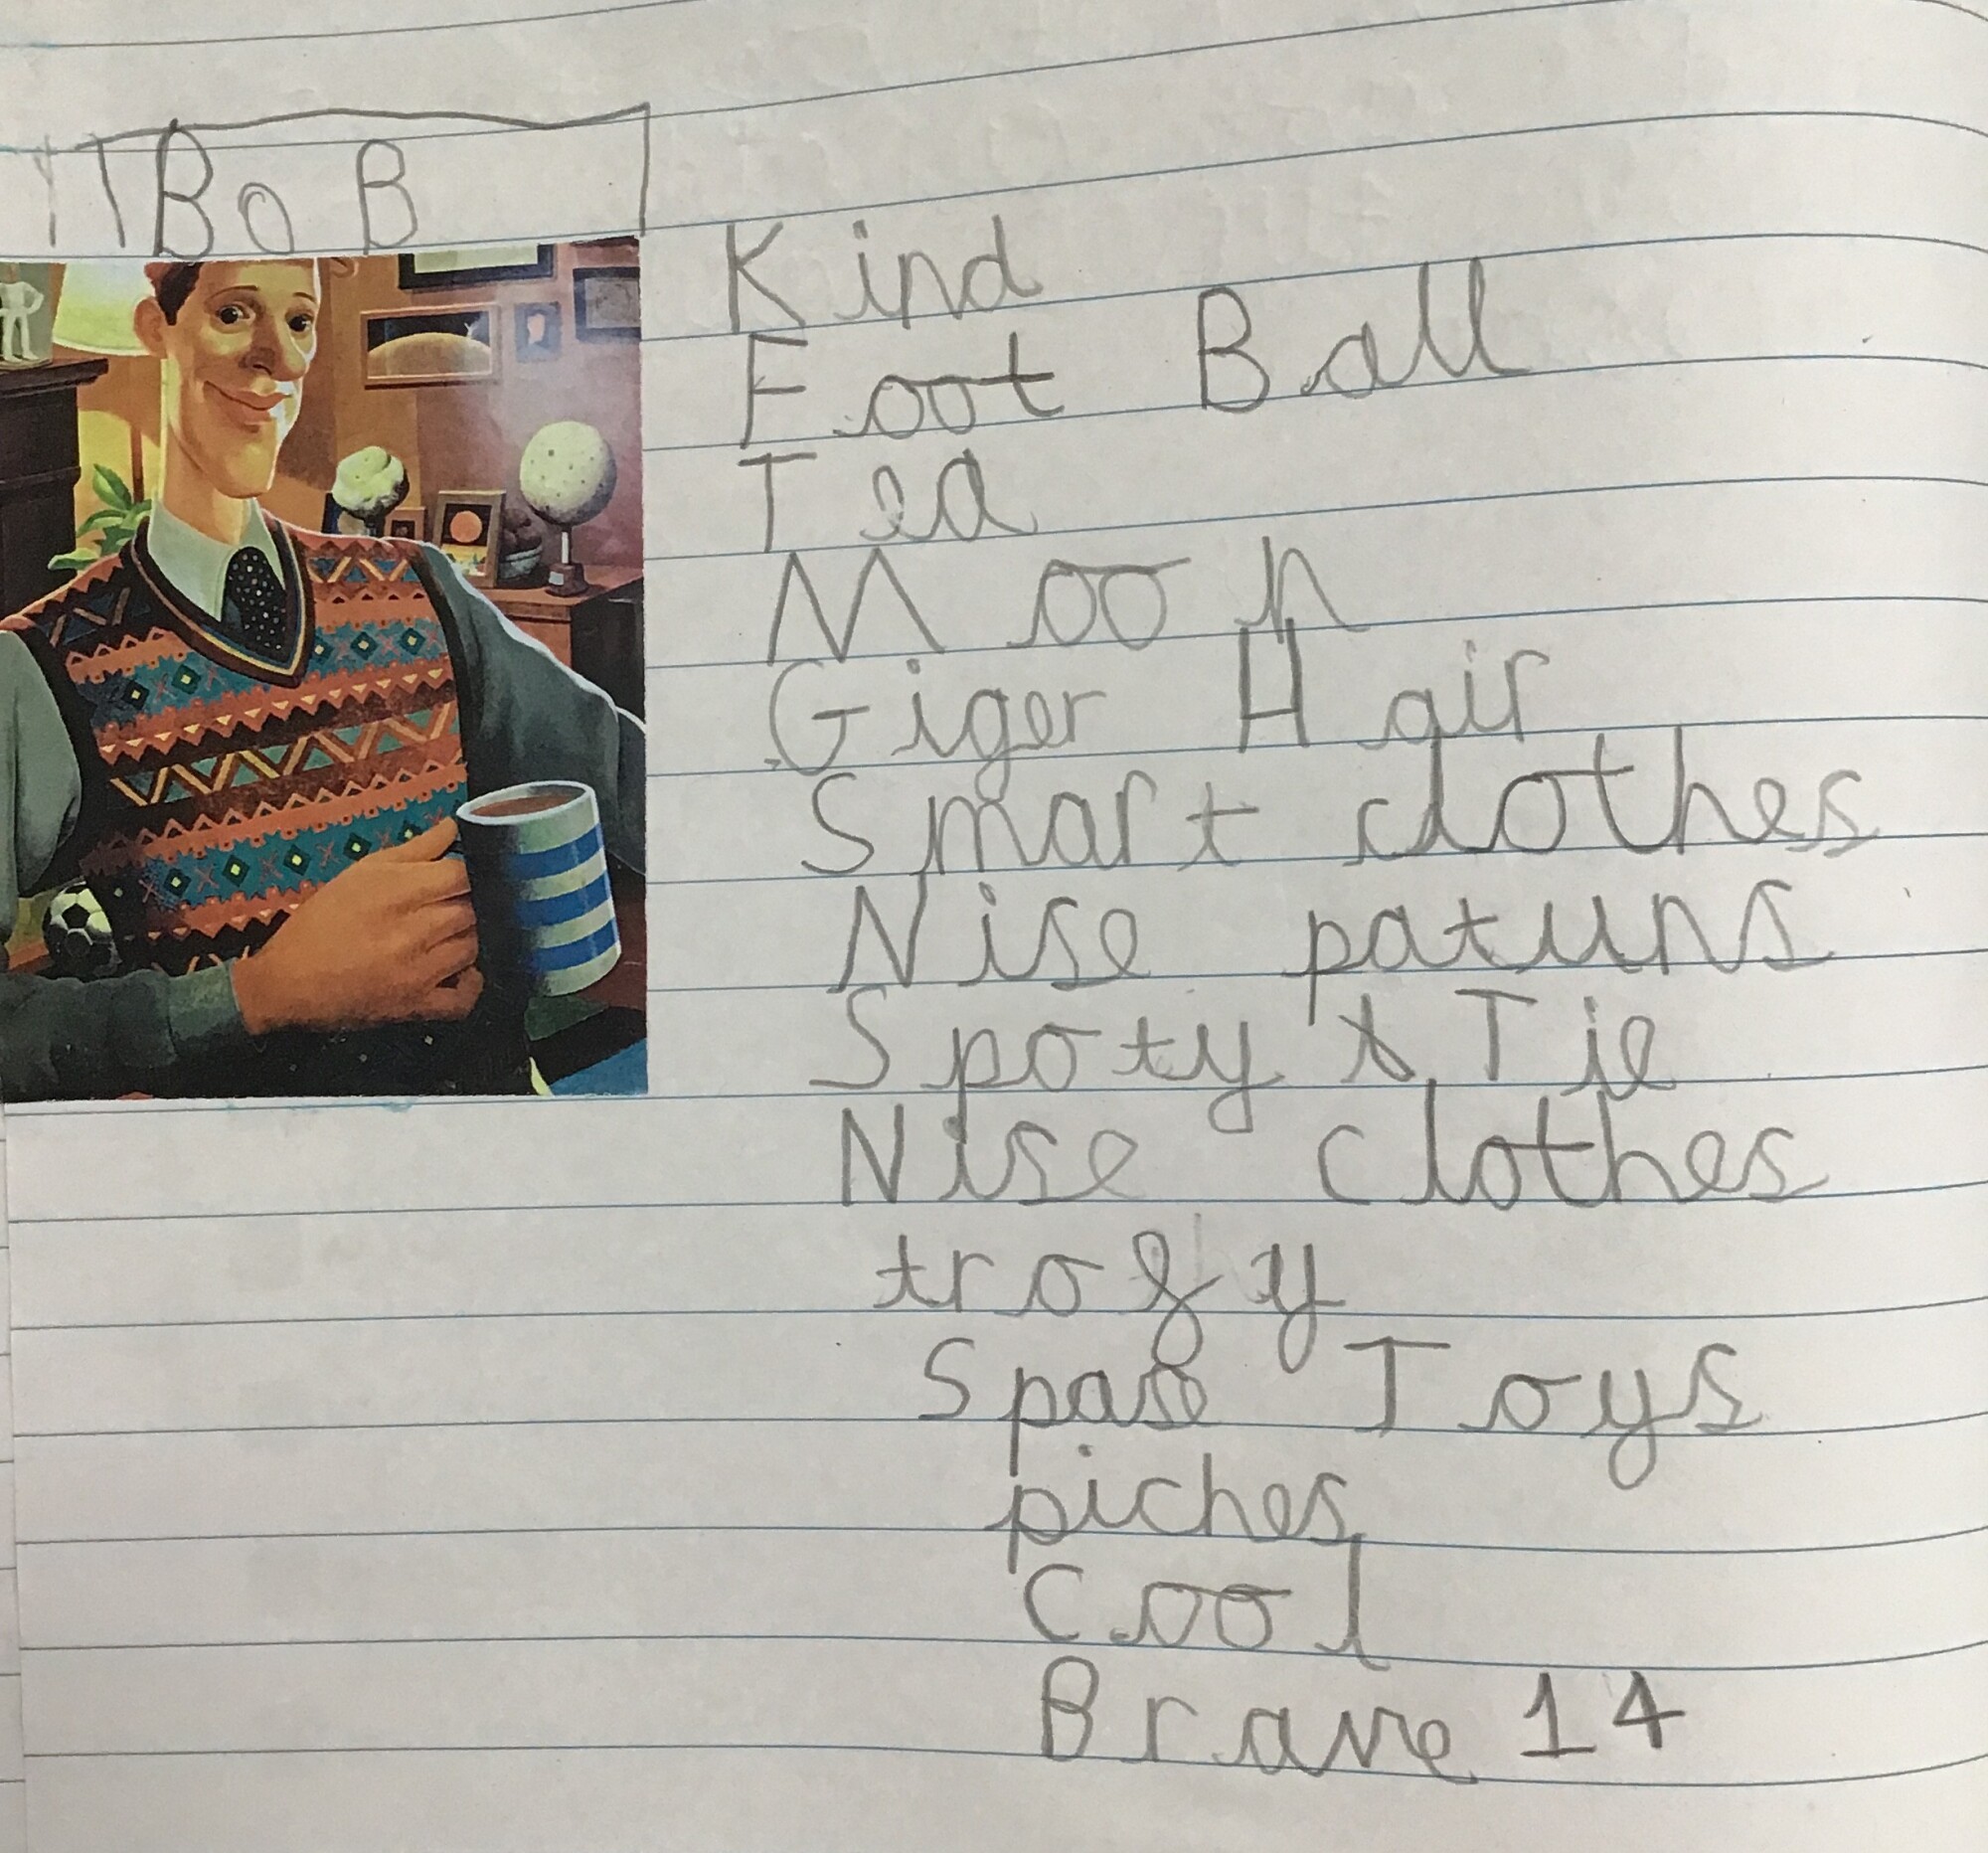 BoB
Kind
Foot Ball
Tea
Moon
Giger Hair
Smart clothes
Nise patuns
Spoty Tie
Nise clothes
trofy
Spase Toys
piches
Cool
Brave 14